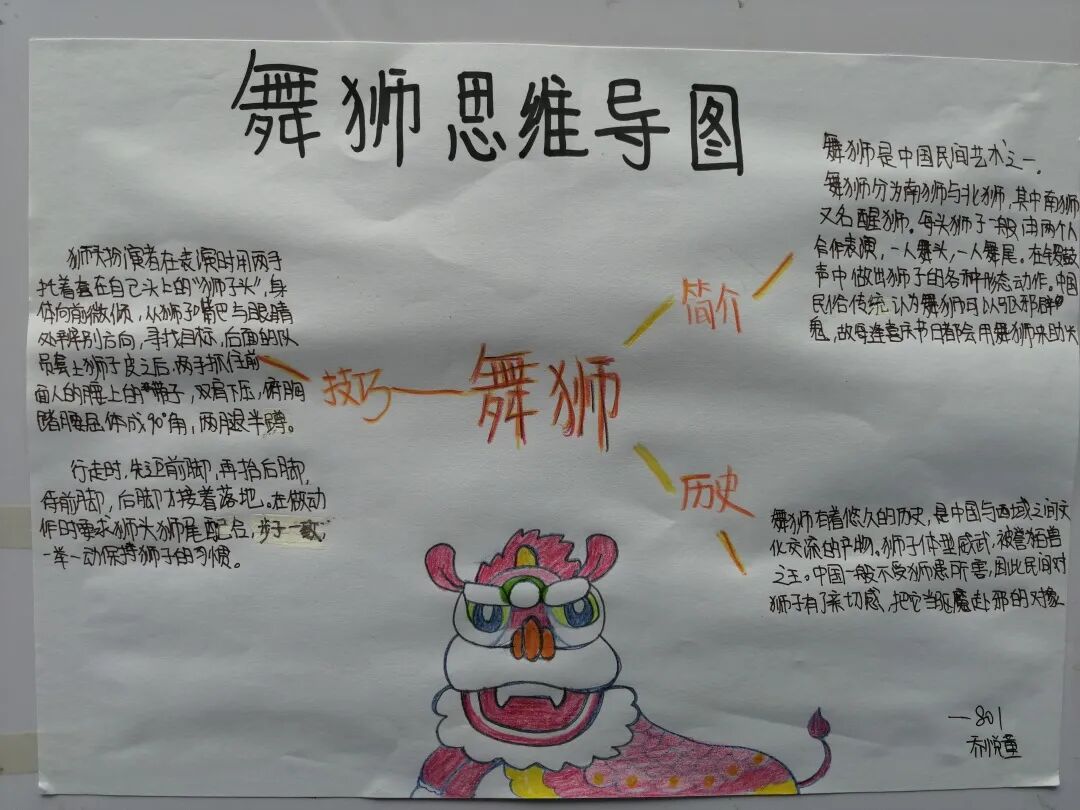 舞狮思维导图
舞狮是中国民间艺术之一。
舞狮分为南狮与北狮,其中南狮
又名醒狮。每头狮子一般由两个人
合作表演,一人舞头,一人舞尾。在锣鼓
声中做出狮子的各种形态动作。中国
民俗传统,认为舞狮可以驱邪辟
鬼,故每逢喜庆节日都会用舞狮来助兴
简介
舞狮
技巧
狮头扮演者在表演时用两手
托着套在自己头上的“狮子头”,身
体向前微倾,从狮子嘴把与眼睛
处辨别方向,寻找目标,后面的队
员套上狮子皮之后,两手抓住前
面人的腰上的带子,双肩下压,俯胸
踏腰屈体成90°角,两腿半蹲。
行走时,先迈前脚,再抬后脚,
待前脚,后脚才接着落地。在做动
作时要求狮头狮尾配合,步子一致,
一举一动保持狮子的习惯。
历史
舞狮有着悠久的历史,是中国与西域之间文
化交流的产物。狮子体型威武,被誉百兽
之王。中国一般不受狮患所害,因此民间对
狮子有了亲切感,把它当驱魔赴邪的对象
—801
乔悦童